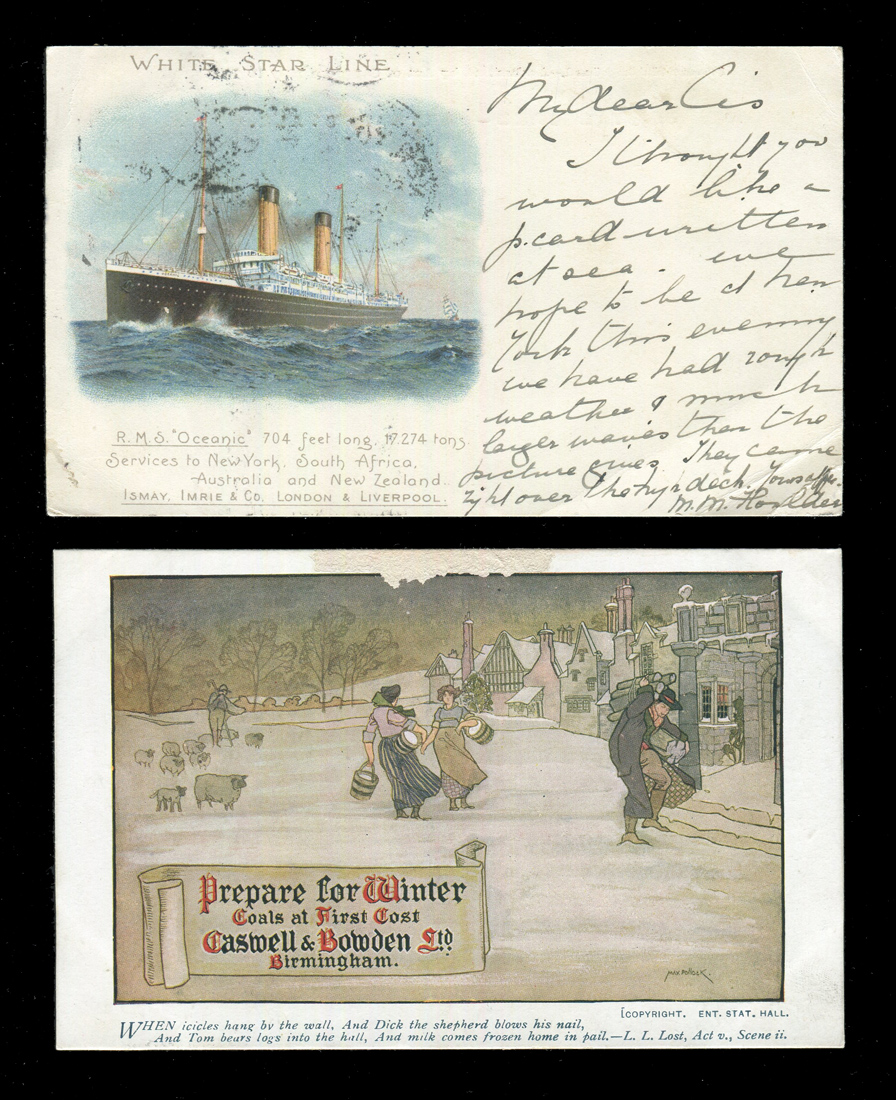 WHITE STAR LINE
R.M.S. "Oceanic" 704 feet long. 17.274 tons.
Services to New York. South Africa.
Australia and New Zealand.
ISMAY, IMRIE & CO. LONDON & LIVERPOOL.
My dear Cis
I thought you
would like a
p.card written
at sea. we
hope to be at New
York this evening
we have had rough
weather & much
larger waves than the
picture gives. They came
right over the hyr deck. Yours affec.
M. M.
Prepare for Winter
Coals at First Cost
Caswell & Bowden Ltd
Birmingham.
MAX POLLOCK.
[COPYRIGHT. ENT. STAT. HALL.
WHEN icicles hang by the wall, And Dick the shepherd blows his nail,
And Tom bears logs into the hall, And milk comes frozen home in pail.—L. L. Lost, Act v., Scene ii.